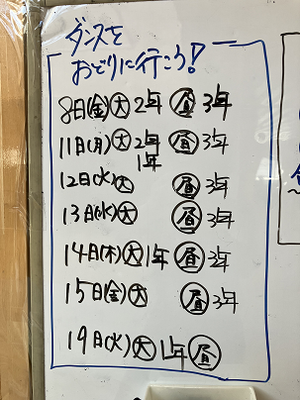 ダンスを
おどりに行こう!
8日(金)大 2年 昼 3年
11日(月)大 2年 昼 3年
1年
12日(火)大 昼 3年
13日(水)大 昼 3年
14日(木)大 1年 昼 3年
15日(金)大 昼 3年
19日(火)大 1年 昼